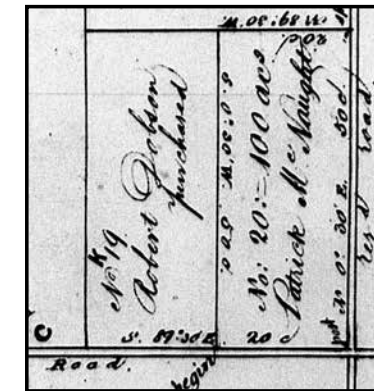 N. 89:30 W.
20 c.
K
No. 19
Robert Dobson
purchased
S. 0:30 W. 50 c.
No: 20:=100 acs
Patrick McNaught
N. 0:30 E. 50 c.
post
res'd road
C
S. 89:30 E
20 c
Road.